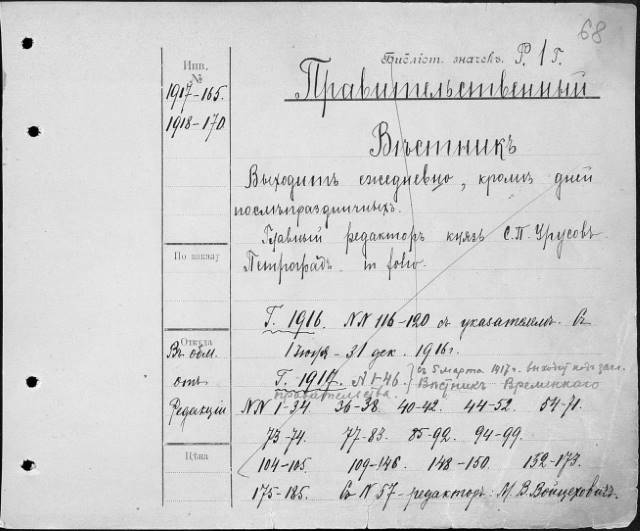 68
Библіот. значекъ. Р. 1 г.
Инв.
№
1917-165.
1918-170.
Правительственный
Вѣстникъ
Выходитъ ежедневно, кромѣ дней
послѣпраздничныхъ.
Главный редакторъ князь С. П. Урусовъ.
По заказу
Петроградъ. in folio.
Г. 1916. NN 116-120 съ указателемъ. Съ
Откуда
1 іюля - 31 дек. 1916 г.
Въ обм.
отъ
Редакціи
Г. 1917. N 1-46. съ 5 марта 1917 г. выходит под загл.
Вѣстникъ Временного
правительства.
NN 1-34. 36-38. 40-42. 44-52. 54-71.
73-74. 77-83. 85-92. 94-99.
Цѣна
104-105. 109-146. 148-150. 152-173.
175-185. Съ N 57 - редакторъ: М. В. Войцеховичъ.